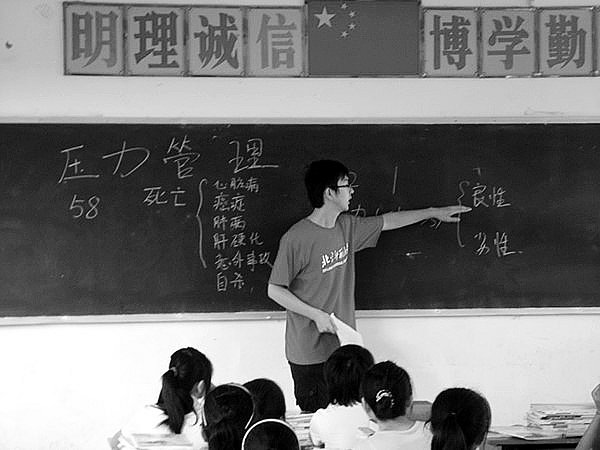 明理诚信 博学勤
压力管理
58 死亡
心脏病
癌症
肺病
肝硬化
意外事故
自杀
良性
劣性